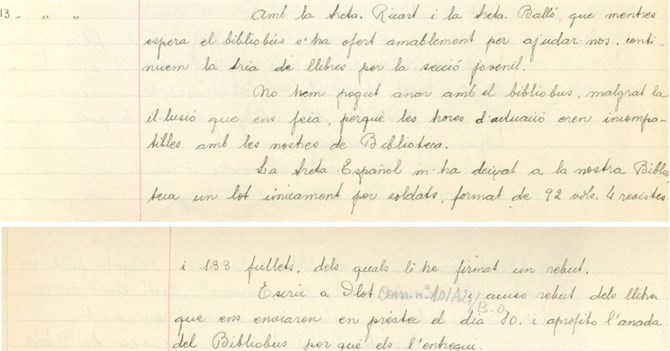 13 - " " Amb la Sreta. Ricart i la Sreta. Balló, que mentres
espera el bibliobús s'ha ofert amablement per ajudar nos, conti-
nuem la tria de llibres per la secció jovenil.
No hem pogut anar amb el bibliobus, malgrat la
il·lusió que ens feia, perquè les hores d'actuació eren incompa-
tibles amb les nostres de Biblioteca.
La Sreta Español m-ha deixat a la nostra Biblio
teca un lot únicament per soldats, format de 92 vols. 4 revistes
i 133 fullets, dels quals li he firmat un rebut.
Escric a Olot Com. nº 310/A2/ i acuso rebut dels llibres
B.O.
que ens enviaren en préstec el dia 10. i aprofito l'anada
del Bibliobus per què els l'entregui.